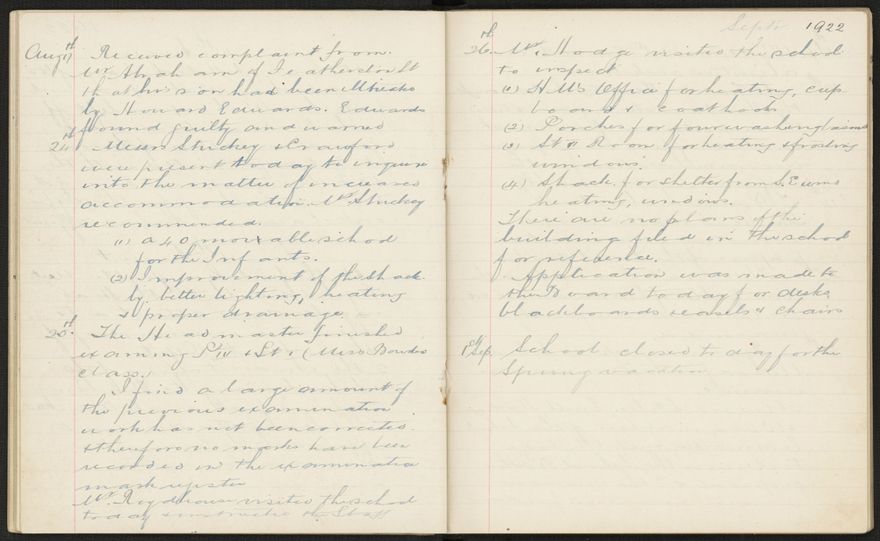 Aug 17th Received complaint from
Mr Abraham of Featherston St
that his son had been attacked
by Howard Edwards. Edwards
found guilty and warned
24th Messrs Stuckey & Crawford
were present today to inquire
into the matter of increased
accommodation. Mr Stuckey
recommended.
(1) a 40 moveable school
for the Infants.
(2) Improvement of the shack
by better lighting, heating
& proper drainage.
25th The Headmaster finished
examining P IV & St I (Miss
class.)
I find a large amount of
the previous examination
work has not been corrected.
& therefore no marks have been
recorded in the examination
mark register
Mr. Roydhouse visited the school
today & instructed the Staff
Sept 1922
26th Mr. Hodge visited the school
to inspect
(1) H.M's Office for heating, cup
boards & coathooks
(2) Porches for four washing basins
(3) St II Room for heating & frosting
windows.
(4) Shack for shelter from S.E. winds
heating, windows.
There are no plans of the
building filed in the school
for reference.
Application was made to
the Board today for desks
blackboards easels & chairs
1st Sep. School closed today for the
Spring vacation